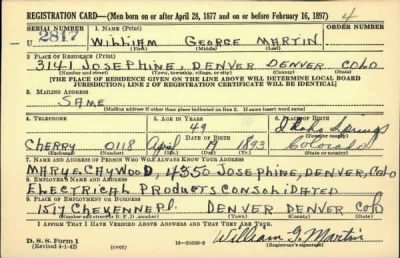 REGISTRATION CARD—(Men born on or after April 28, 1877 and on or before February 16, 1897) 4
SERIAL NUMBER 1. NAME (Print)
U 2817 WILLIAM GEORGE MARTIN
(First) (Middle) (Last)
2. PLACE OF RESIDENCE (Print)
3141 JOSEPHINE, DENVER DENVER COLO
(Number and street) (Town, township, village, or city) (County) (State)
[THE PLACE OF RESIDENCE GIVEN ON THE LINE ABOVE WILL DETERMINE LOCAL BOARD
JURISDICTION; LINE 2 OF REGISTRATION CERTIFICATE WILL BE IDENTICAL]
3. MAILING ADDRESS
SAME
[Mailing address if other than place indicated on line 2. If same insert word same]
4. TELEPHONE 5. AGE IN YEARS 6. PLACE OF BIRTH
49 Idaho Springs
DATE OF BIRTH (Town or county)
CHERRY 0118 April 19 1893 Colorado
(Exchange) (Number) (Mo.) (Day) (Yr.) (State or country)
7. NAME AND ADDRESS OF PERSON WHO WILL ALWAYS KNOW YOUR ADDRESS
MARY E. CHYWOOD, 4350 JOSEPHINE, DENVER, COLO
8. EMPLOYER'S NAME AND ADDRESS
ELECTRICAL PRODUCTS CONSOLIDATED
9. PLACE OF EMPLOYMENT OR BUSINESS
1517 CHEYENNE PL. DENVER DENVER COLO
(Number and street or R. F. D. number) (Town) (County) (State)
I AFFIRM THAT I HAVE VERIFIED ABOVE ANSWERS AND THAT THEY ARE TRUE.
D. S. S. Form 1 William G. Martin
(Revised 4-1-42) (over) 16-21630-2 (Registrant's signature)